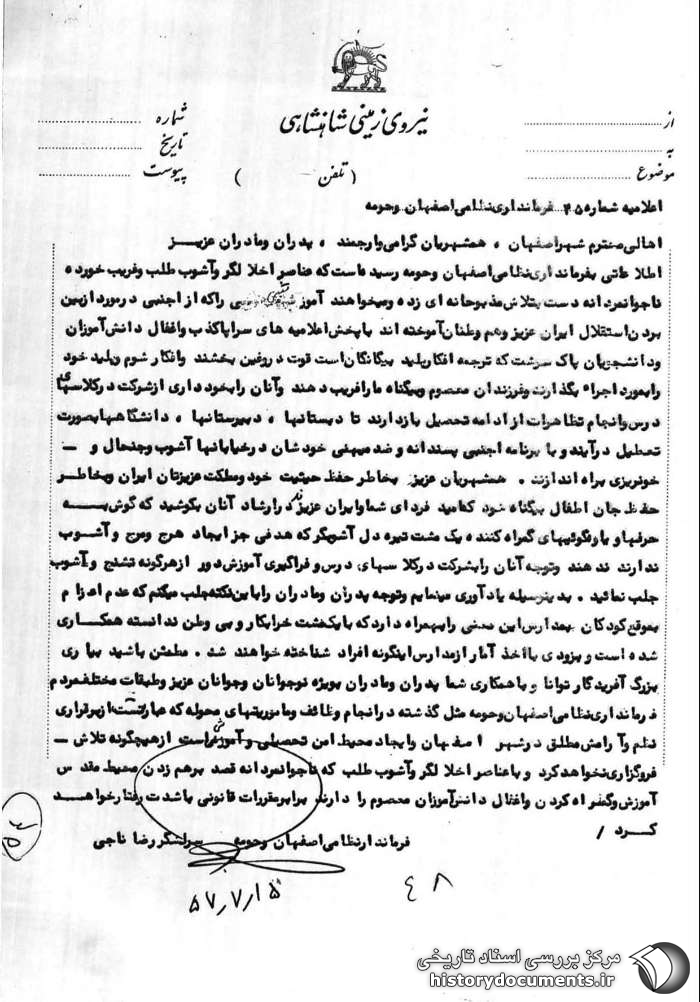 نیروی زمینی شاهنشاهی
از
به
موضوع
شماره
تاریخ
پیوست
( تلفن )
اعلامیه شماره ۴۵ فرمانداری نظامی اصفهان وحومه
اهالی محترم شهر اصفهان ، همشهریان گرامی وارجمند ، پدران ومادران عزیز
اطلاعاتی بفرمانداری نظامی اصفهان وحومه رسیده است که عناصر اخلالگر وآشوب طلب وفریب خورده
ناجوانمردانه دست بتلاش مذبوحانه ای زده ومیخواهند آموزشهای راکه از اجنبی درمورد ازبین
بردن استقلال ایران عزیز وهم وطنان آموخته اند باپخش اعلامیه های سراپاکذب واغفال دانش آموزان
ودانشجویان پاک سرشت که ترجمه افکارپلید بیگانگان است قوت دروغین بخشند وافکار شوم وپلید خود
رابمورد اجراء بگذارند وفرزندان معصوم وبیگناه مارافریب دهند وآنان رابخودداری ازشرکت درکلاسهای
درس وانجام تظاهرات از ادامه تحصیل بازدارند تا دبستانها ، دبیرستانها ، دانشگاهها بصورت
تعطیل درآیند و با برنامه اجنبی پسندانه و ضد میهنی خودشان درخیابانها آشوب وجنجال و ـ
خونریزی براه اندازند . همشهریان عزیز بخاطر حفظ حیثیت خود ومملکت عزیزتان ایران وبخاطر
حفظ جان اطفال بیگناه خود که امید فردای شما وایران عزیزند درارشاد آنان بکوشید که گوش به
حرفها و یاوه گوئیهای گمراه کننده یک مشت تیره دل آشوبگر که هدفی جز ایجاد هرج ومرج و آشوب
ندارند ندهند وتوجه آنان رابشرکت درکلاسهای درس و فراگیری آموزش دور ازهرگونه تشنج وآشوب
جلب نمائید . بدینوسیله یادآوری مینمایم وتوجه پدران ومادران راباین نکته جلب میکنم که عدم اعزام
بموقع کودکان بمدارس این معنی رابهمراه دارد که بایکمشت خرابکار و بی وطن ندانسته همکاری
شده است و بزودی بااخذ آمار ازمدارس اینگونه افراد شناخته خواهند شد . مطمئن باشید بیاری
بزرگ آفریدگار توانا و باهمکاری شما پدران ومادران بویژه نوجوانان وجوانان عزیز وطبقات مختلف مردم
فرمانداری نظامی اصفهان وحومه مثل گذشته درانجام وظائف وماموریتهای محوله که عبارتست از برقراری
نظم وآرامش مطلق درشهر اصفهان وایجاد محیط امن تحصیلی و آموزشی است ازهیچگونه تلاش ـ
فروگزاری نخواهد کرد و باعناصر اخلالگر وآشوب طلب که ناجوانمردانه قصد برهم زدن محیط مقدس
آموزش وگمراه کردن واغفال دانش آموزان معصوم را دارند برابر مقررات قانونی باشدت رفتار خواهد
کرد /
فرماندار نظامی اصفهان وحومه سرلشگر رضا ناجی
۵۷٫۷٫۱۵
۴۸
مرکز بررسی اسناد تاریخی
historydocuments.ir